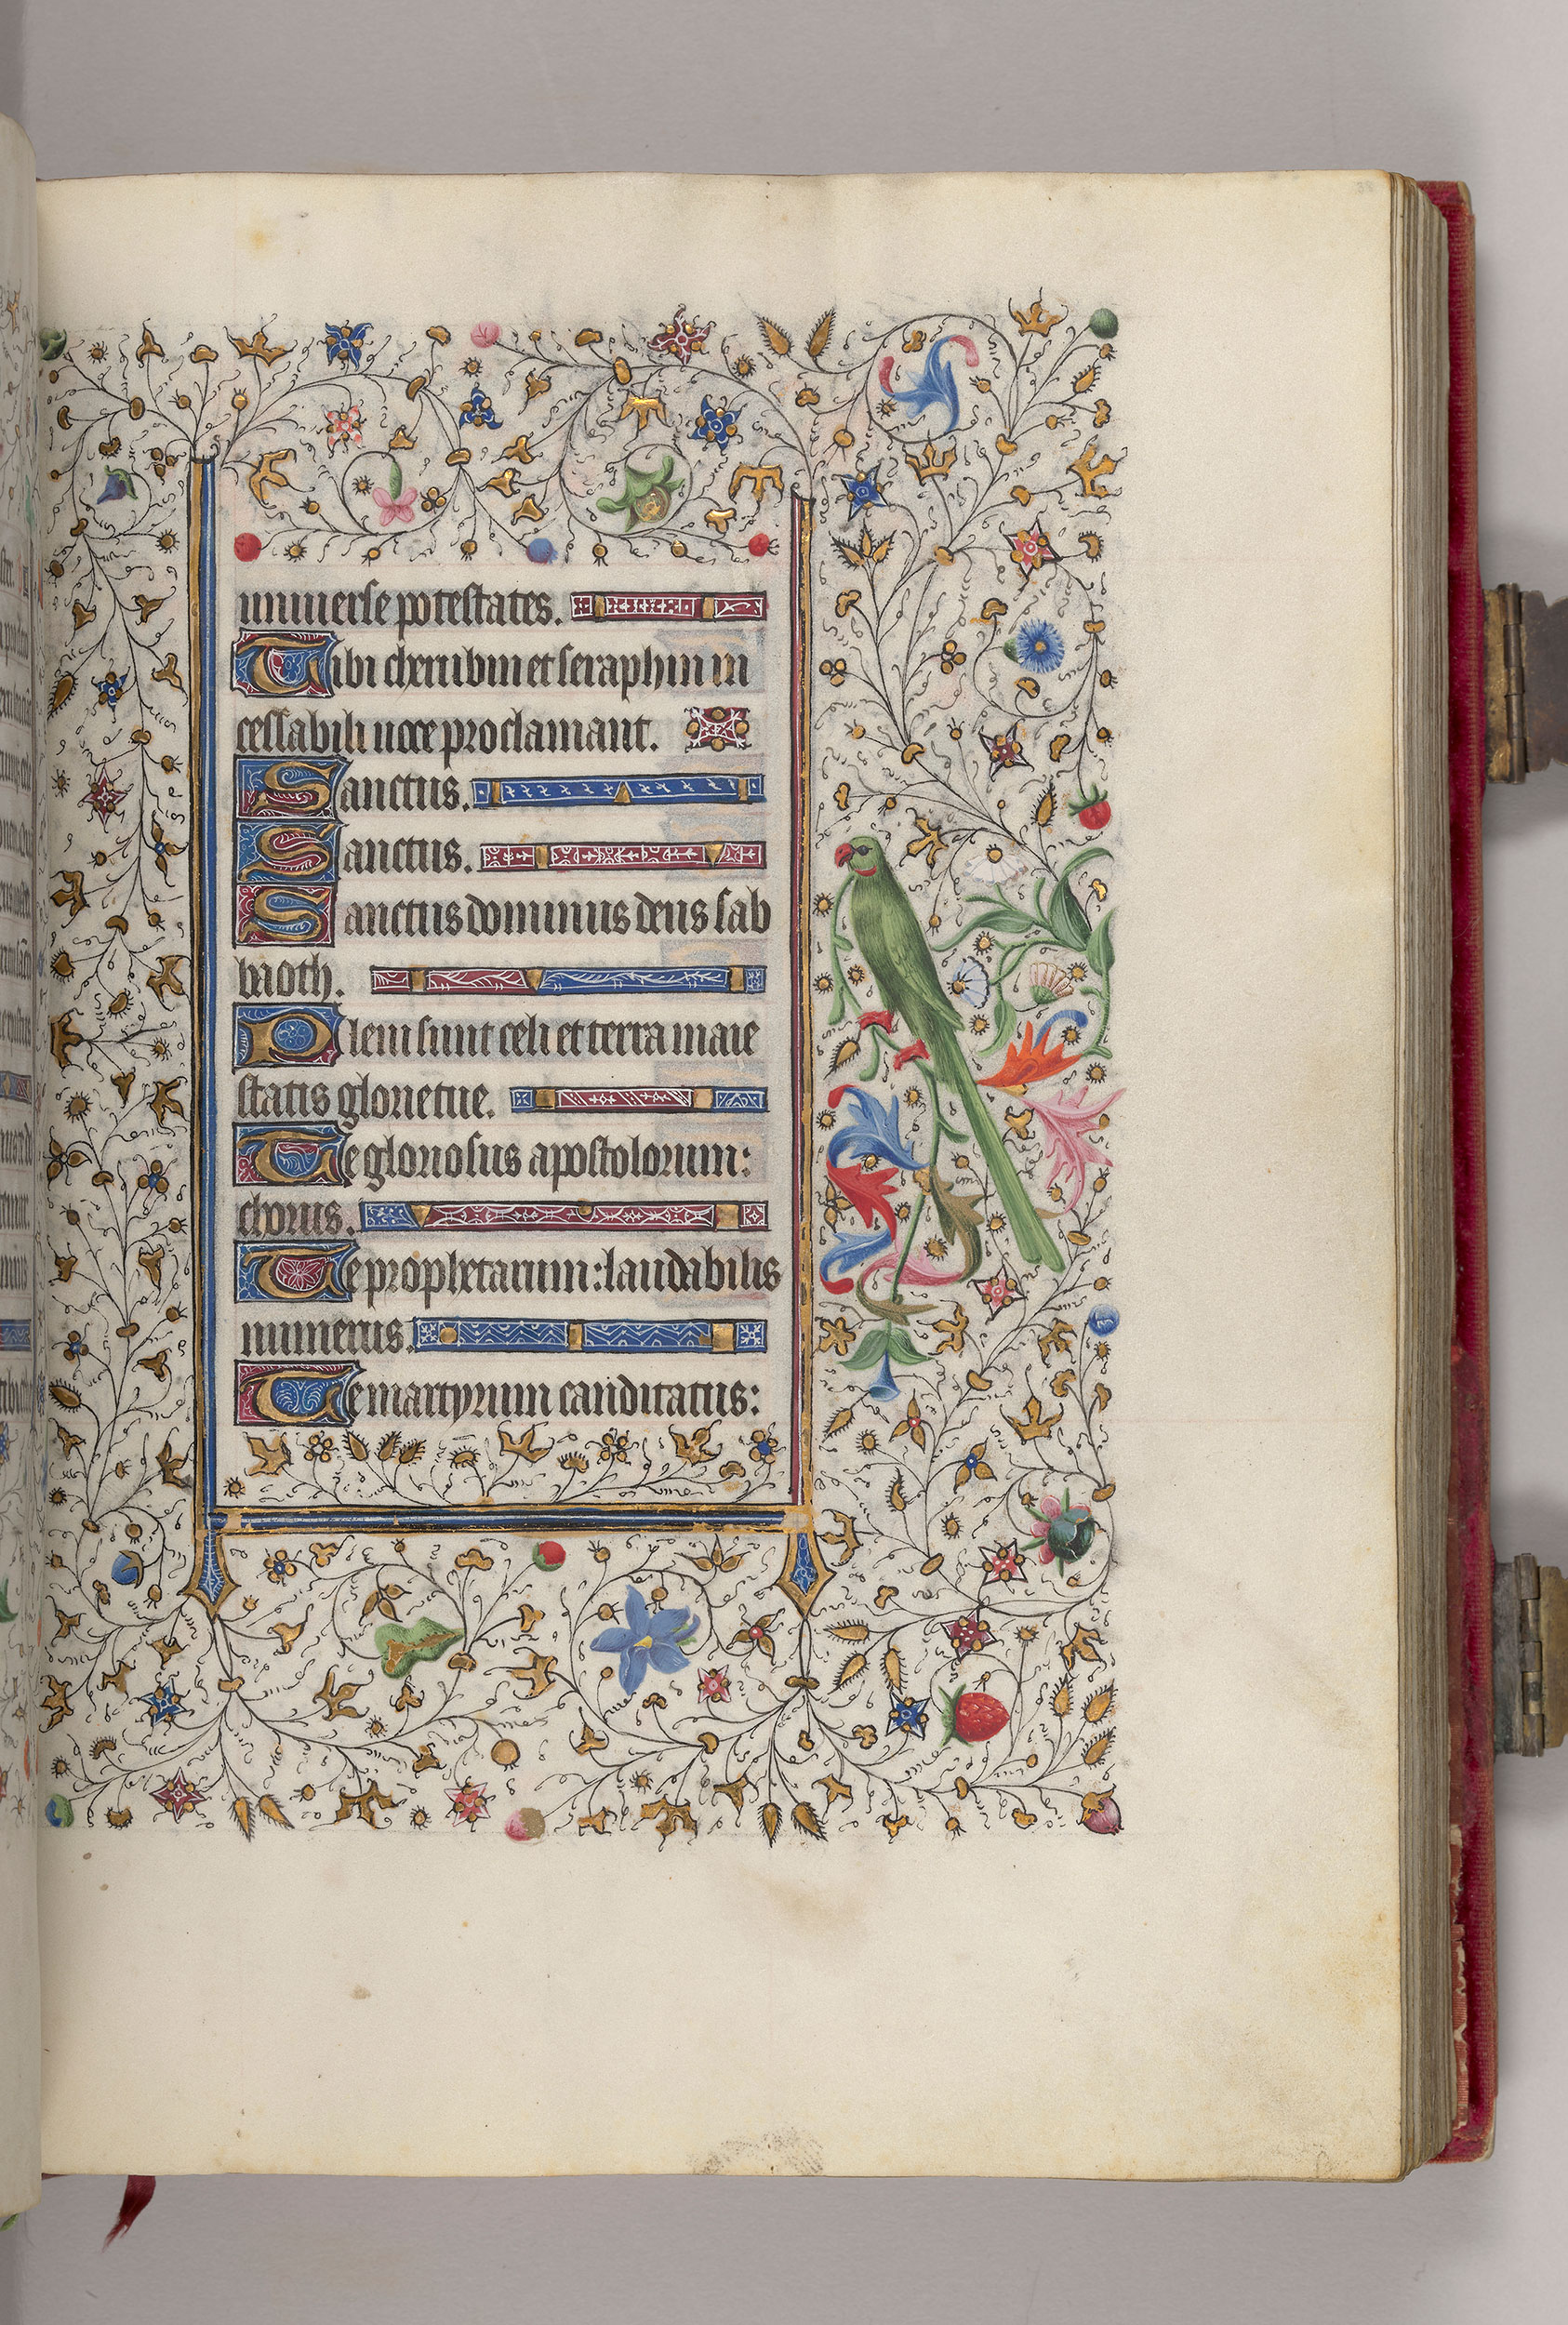 uniuerse potestates.
Tibi cherubin et seraphin in
cessabili uoce proclamant.
Sanctus.
Sanctus.
Sanctus dominus deus sab
baoth.
Pleni sunt celi et terra maie
statis glorie tue.
Te gloriosus apostolorum:
chorus.
Te prophetarum: laudabilis
numerus.
Te martyrum canditatus: